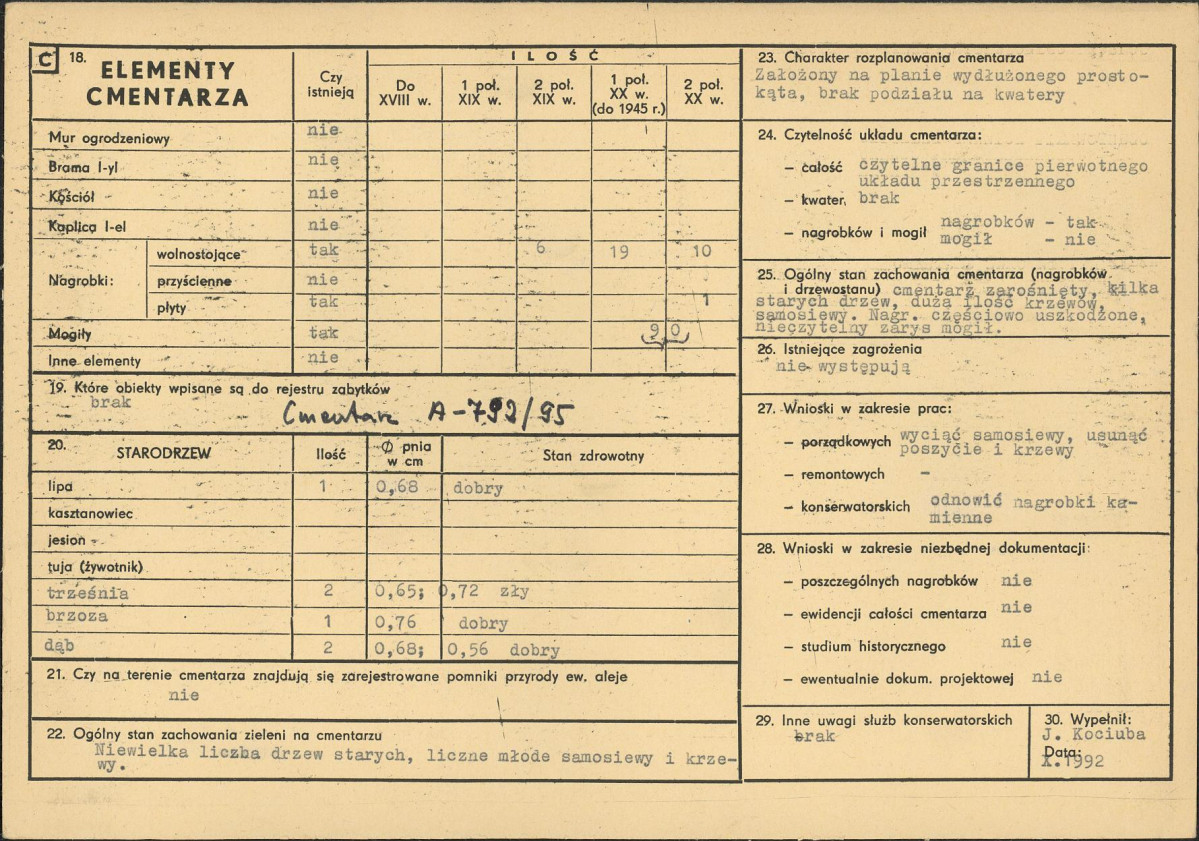 C 18. ELEMENTY CMENTARZA
Czy istnieją
ILOŚĆ
Do XVIII w.
1 poł. XIX w.
2 poł. XIX w.
1 poł. XX w. (do 1945 r.)
2 poł. XX w.
Mur ogrodzeniowy nie
Brama I-yl nie
Kościół nie
Kaplica I-el nie
Nagrobki:
wolnostojące tak 6 19 10
przyścienne nie
płyty tak 1
Mogiły tak 90
Inne elementy nie
19. Które obiekty wpisane są do rejestru zabytków
brak
Cmentarz A-792/95
20. STARODRZEW Ilość Ø pnia w cm Stan zdrowotny
lipa 1 0,68 dobry
kasztanowiec
jesion
tuja (żywotnik)
trześnia 2 0,65; 0,72 zły
brzoza 1 0,76 dobry
dąb 2 0,68; 0,56 dobry
21. Czy na terenie cmentarza znajdują się zarejestrowane pomniki przyrody ew. aleje
nie
22. Ogólny stan zachowania zieleni na cmentarzu
Niewielka liczba drzew starych, liczne młode samosiewy i krze-
wy.
23. Charakter rozplanowania cmentarza
Założony na planie wydłużonego prosto-
kąta, brak podziału na kwatery
24. Czytelność układu cmentarza:
– całość czytelne granice pierwotnego
układu przestrzennego
– kwater, brak
– nagrobków i mogił nagrobków - tak
mogił - nie
25. Ogólny stan zachowania cmentarza (nagrobków
i drzewostanu) cmentarz zarośnięty, kilka
starych drzew, duża ilość krzewów,
samosiewy. Nagr. częściowo uszkodzone,
nieczytelny zarys mogił.
26. Istniejące zagrożenia
nie występują
27. Wnioski w zakresie prac:
– porządkowych wyciąć samosiewy, usunąć
poszycie i krzewy
– remontowych -
– konserwatorskich odnowić nagrobki ka-
mienne
28. Wnioski w zakresie niezbędnej dokumentacji:
– poszczególnych nagrobków nie
– ewidencji całości cmentarza nie
– studium historycznego nie
– ewentualnie dokum. projektowej nie
29. Inne uwagi służb konserwatorskich
brak
30. Wypełnił:
J. Kociuba
Data:
X.1992